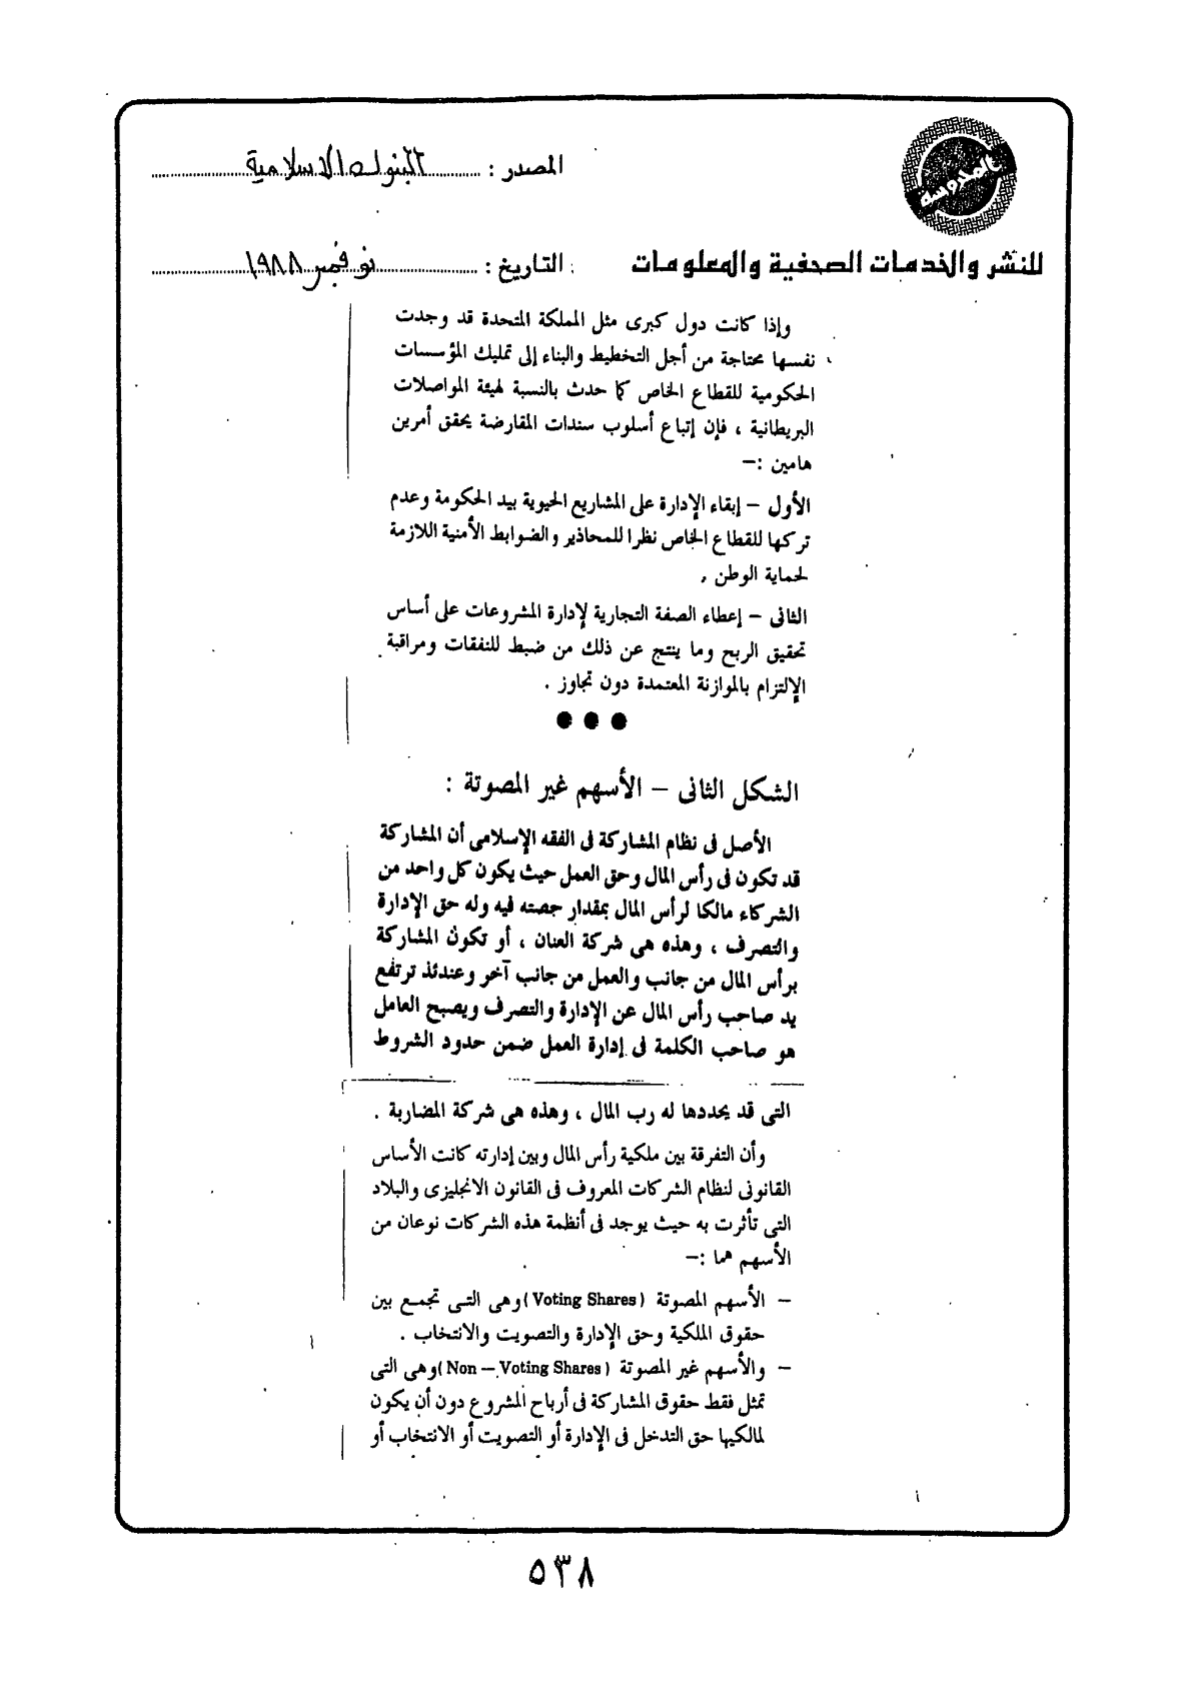 المصدر : البنوك الاسلامية
للنشر والخدمات الصحفية والمعلومات
التاريخ : نوفمبر ١٩٨٨
وإذا كانت دول كبرى مثل المملكة المتحدة قد وجدت
نفسها محتاجة من أجل التخطيط والبناء إلى تمليك المؤسسات
الحكومية للقطاع الخاص كما حدث بالنسبة لهيئة المواصلات
البريطانية ، فإن إتباع أسلوب سندات المقارضة يحقق أمرين
هامين :–
الأول – إبقاء الإدارة على المشاريع الحيوية بيد الحكومة وعدم
تركها للقطاع الخاص نظرا للمحاذير والضوابط الأمنية اللازمة
لحماية الوطن ,
الثانى – إعطاء الصفة التجارية لإدارة المشروعات على أساس
تحقيق الربح وما ينتج عن ذلك من ضبط للنفقات ومراقبة
الإلتزام بالموازنة المعتمدة دون تجاوز .
● ● ●
الشكل الثانى – الأسهم غير المصوتة :
الأصل فى نظام المشاركة فى الفقه الإسلامى أن المشاركة
قد تكون فى رأس المال وحق العمل حيث يكون كل واحد من
الشركاء مالكا لرأس المال بمقدار حصته فيه وله حق الإدارة
والتصرف ، وهذه هى شركة العنان ، أو تكون المشاركة
برأس المال من جانب والعمل من جانب آخر وعندئذ ترتفع
يد صاحب رأس المال عن الإدارة والتصرف ويصبح العامل
هو صاحب الكلمة فى إدارة العمل ضمن حدود الشروط
التى قد يحددها له رب المال ، وهذه هى شركة المضاربة .
وأن التفرقة بين ملكية رأس المال وبين إدارته كانت الأساس
القانونى لنظام الشركات المعروف فى القانون الانجليزى والبلاد
التى تأثرت به حيث يوجد فى أنظمة هذه الشركات نوعان من
الأسهم هما :–
– الأسهم المصوتة (Voting Shares) وهى التى تجمع بين
حقوق الملكية وحق الإدارة والتصويت والانتخاب .
– والأسهم غير المصوتة (Non – Voting Shares) وهى التى
تمثل فقط حقوق المشاركة فى أرباح المشروع دون أن يكون
لمالكيها حق التدخل فى الإدارة أو التصويت أو الانتخاب أو
٥٣٨